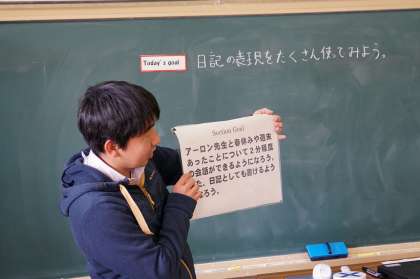 Today's goal
日記の表現をたくさん使ってみよう。
Section Goal
アーロン先生と春休みや週末
あったことについて2分程度
の会話ができるようになろう。
た、日記としても書けるよう
なろう。